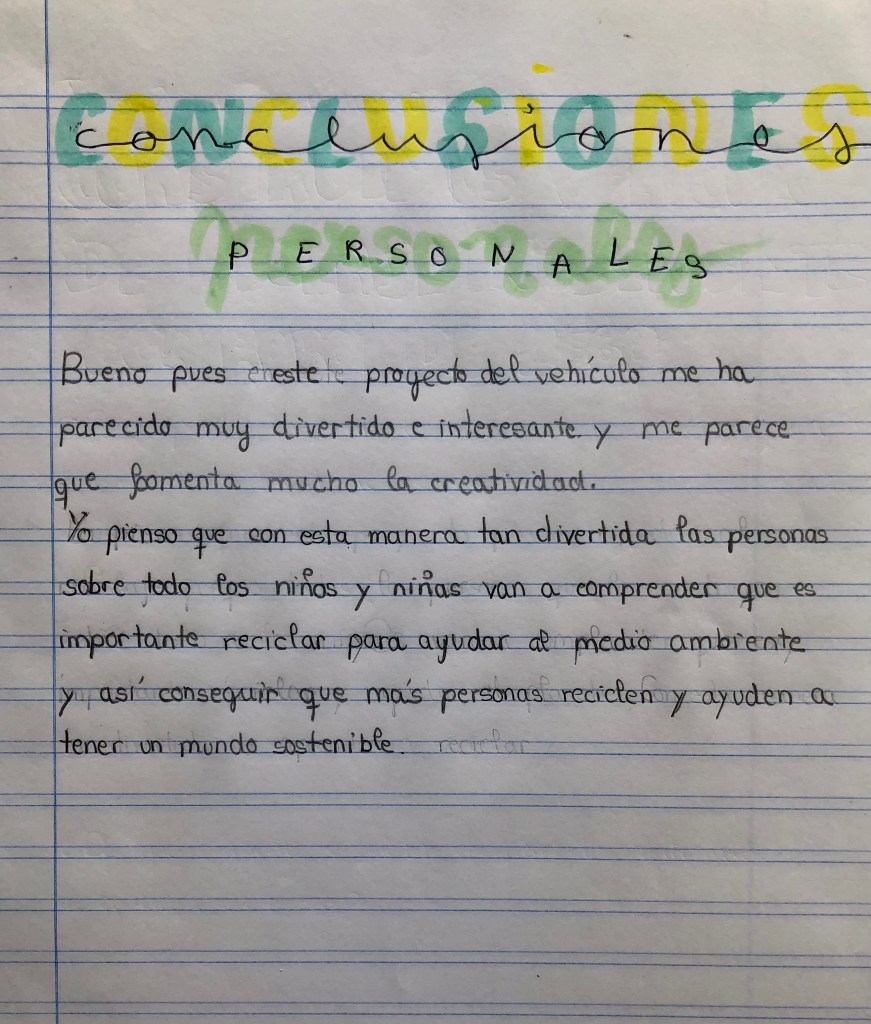 CONCLUSIONES
conclusiones
personales
PERSONALES
Bueno pues este proyecto del vehículo me ha
parecido muy divertido e interesante y me parece
que fomenta mucho la creatividad.
Yo pienso que con esta manera tan divertida las personas
sobre todo los niños y niñas van a comprender que es
importante reciclar para ayudar al medio ambiente
y así conseguir que más personas reciclen y ayuden a
tener un mundo sostenible. reciclar